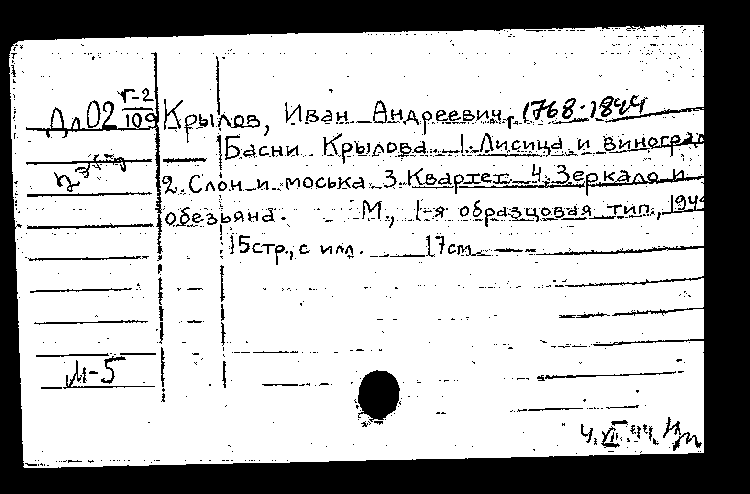 Дл02 Г-2/109
Крылов, Иван Андреевич, 1768-1844
Басни Крылова. 1. Лисица и виноград
2. Слон и моська 3. Квартет 4. Зеркало и
обезьяна. М., 1-я образцовая тип., 194
15стр., с илл. 17см
М-5
4.VII.44.